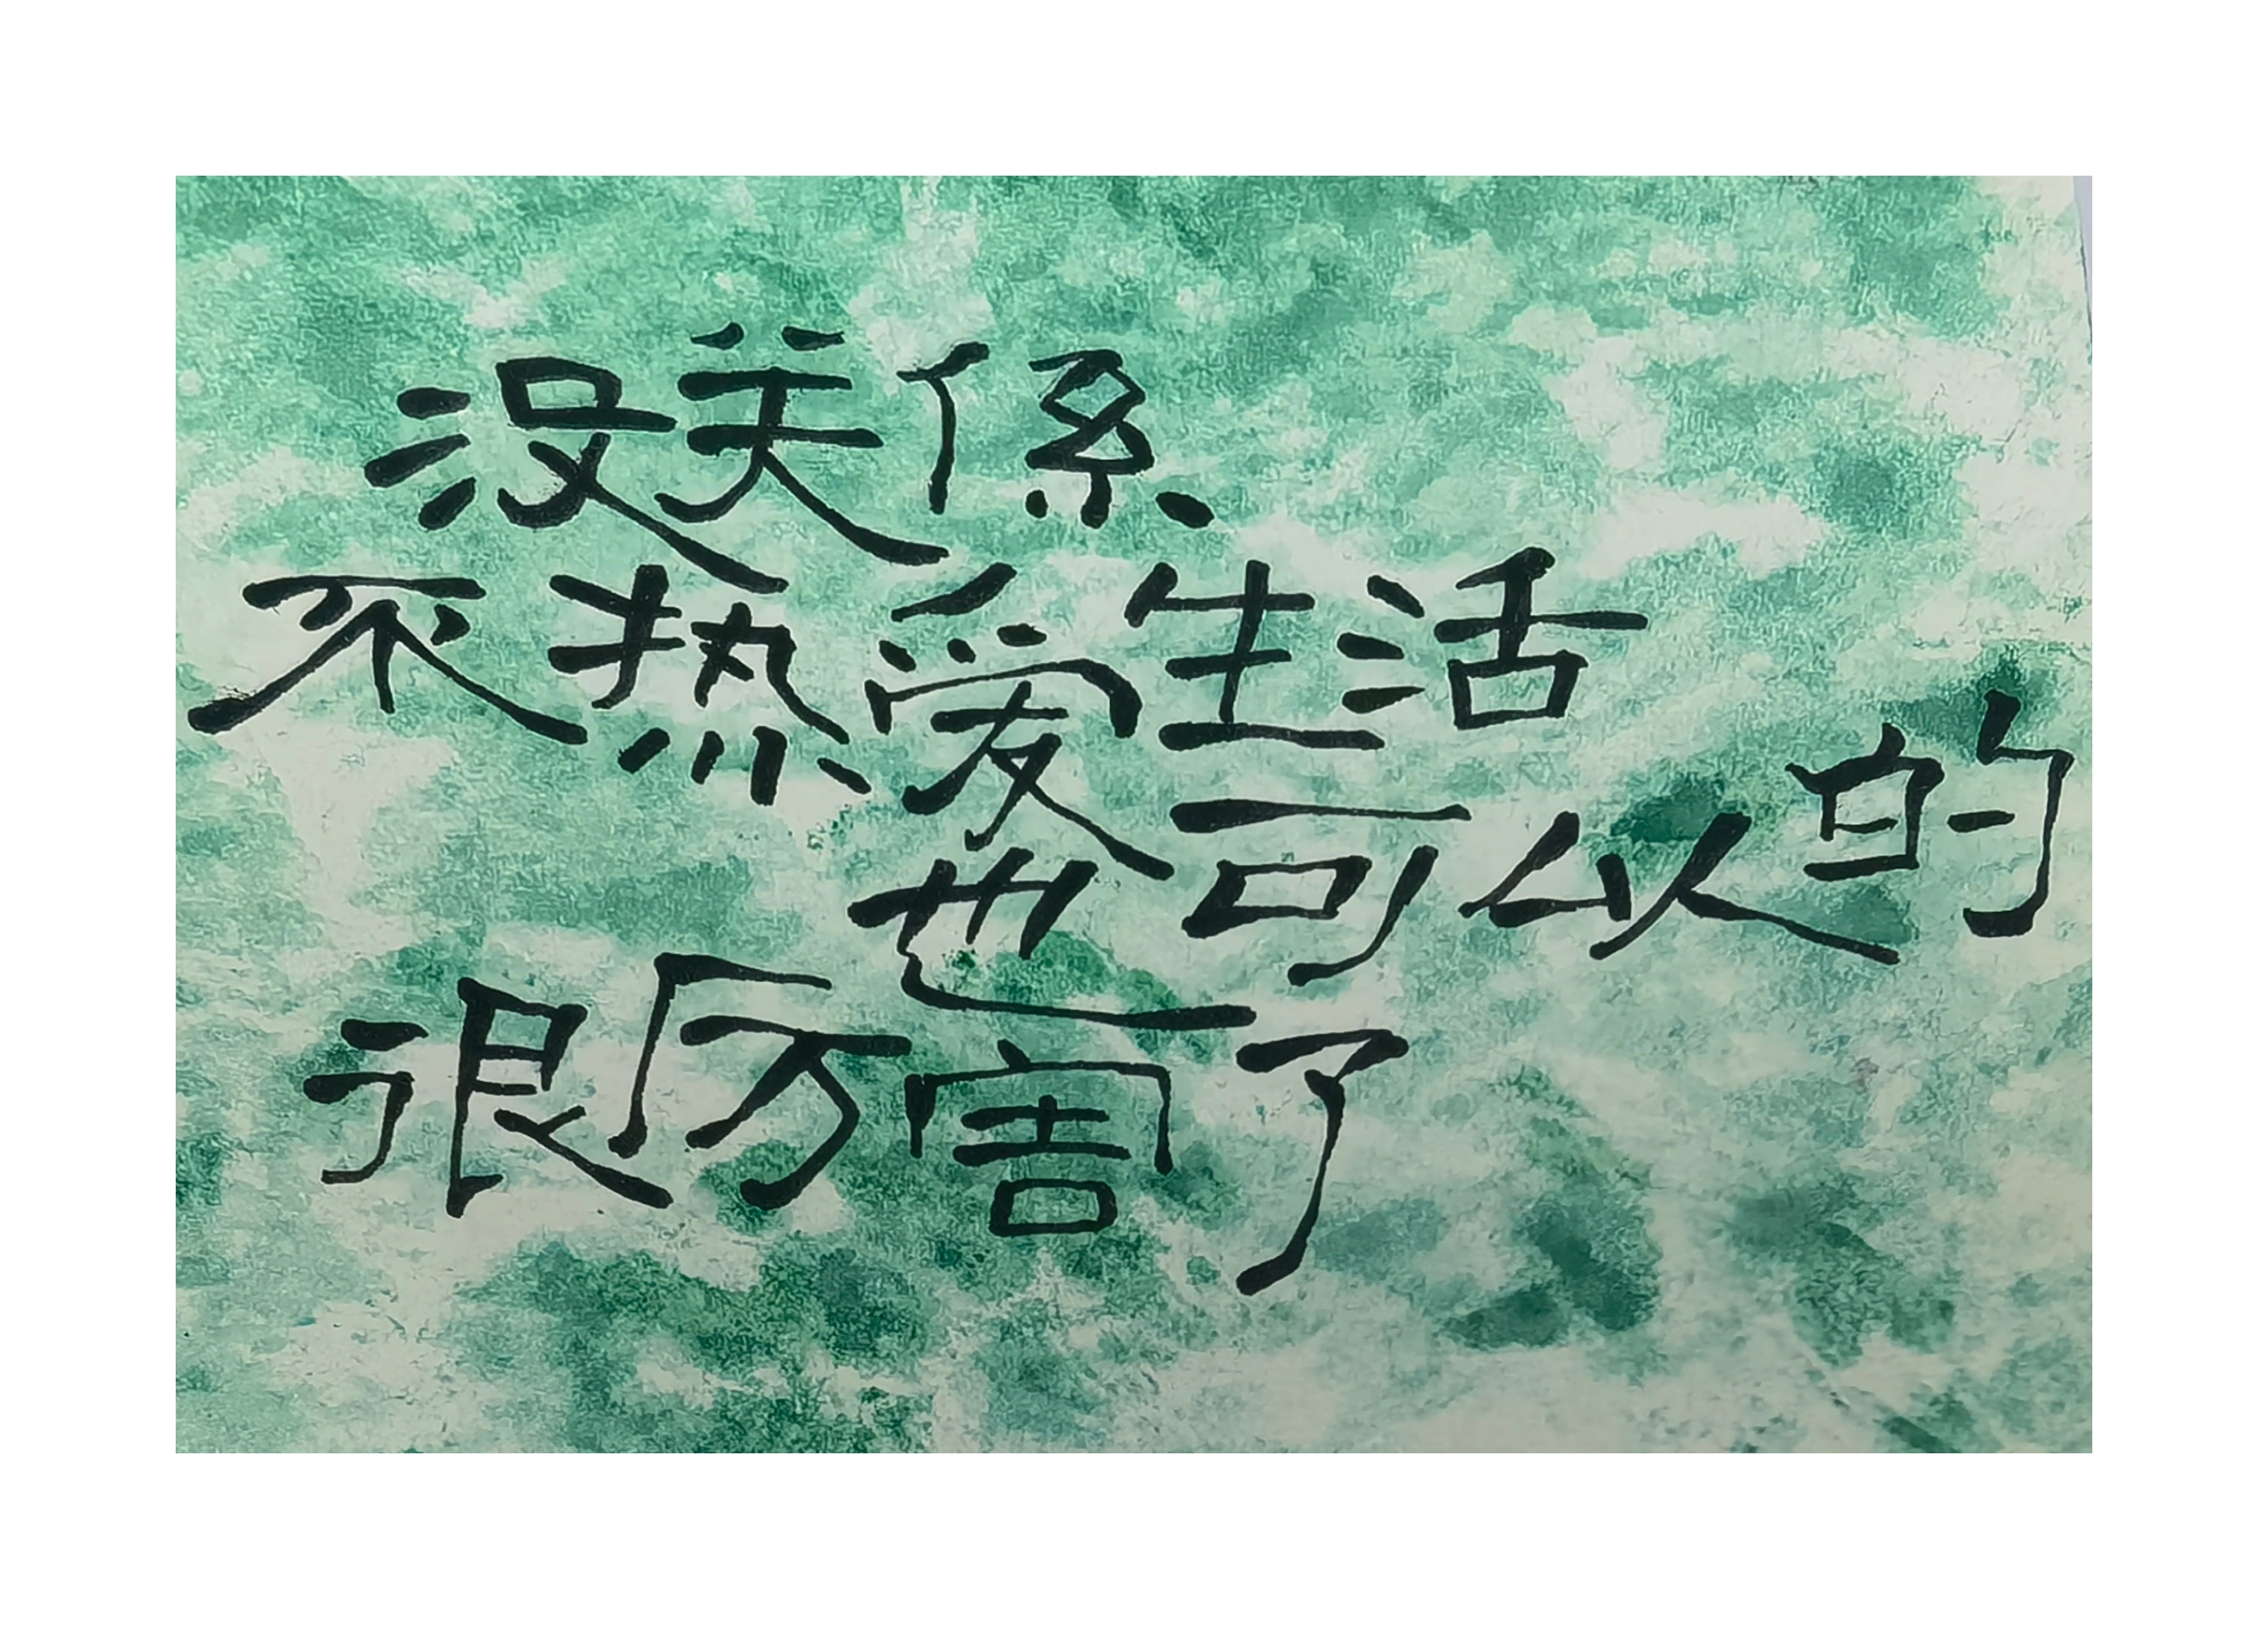 没关係
不热爱生活
也可以的
很厉害了